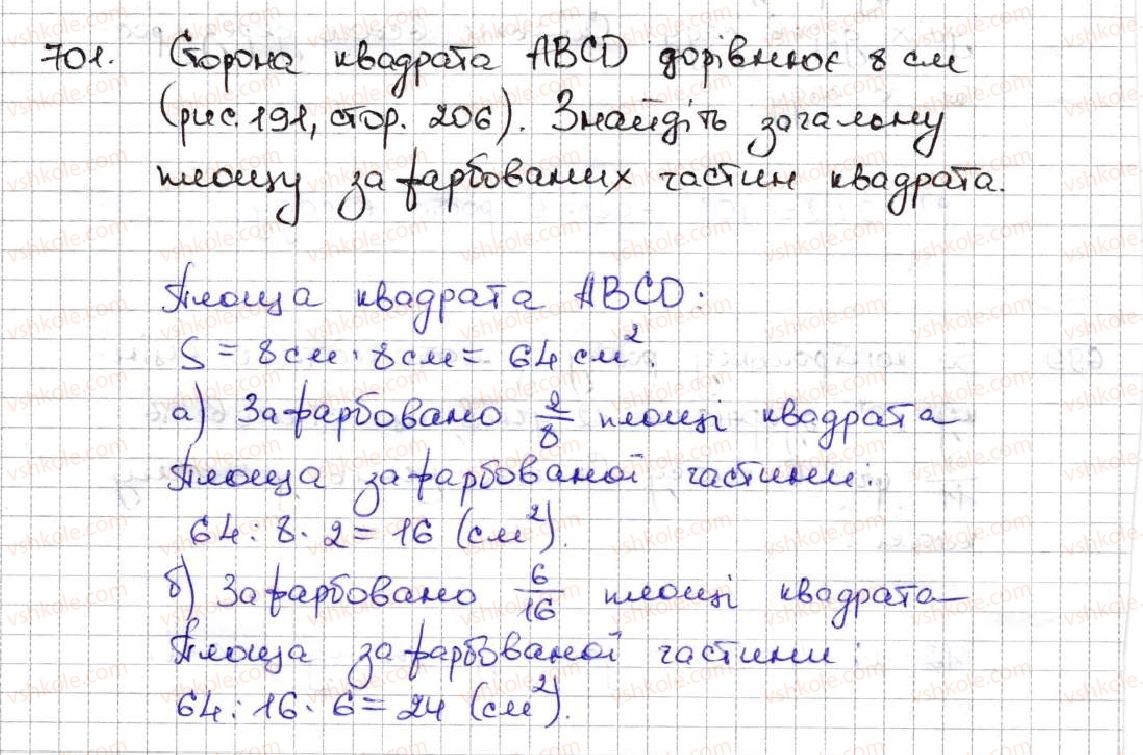 701. Сторона квадрата ABCD дорівнює 8 см
(рис. 191, стор. 206). Знайдіть загальну
площу зафарбованих частин квадрата.
Площа квадрата ABCD:
S = 8 см · 8 см = 64 см².
а) Зафарбовано 2/8 площі квадрата
Площа зафарбованої частини:
64 : 8 · 2 = 16 (см²).
б) Зафарбовано 6/16 площі квадрата
Площа зафарбованої частини:
64 : 16 · 6 = 24 (см²).